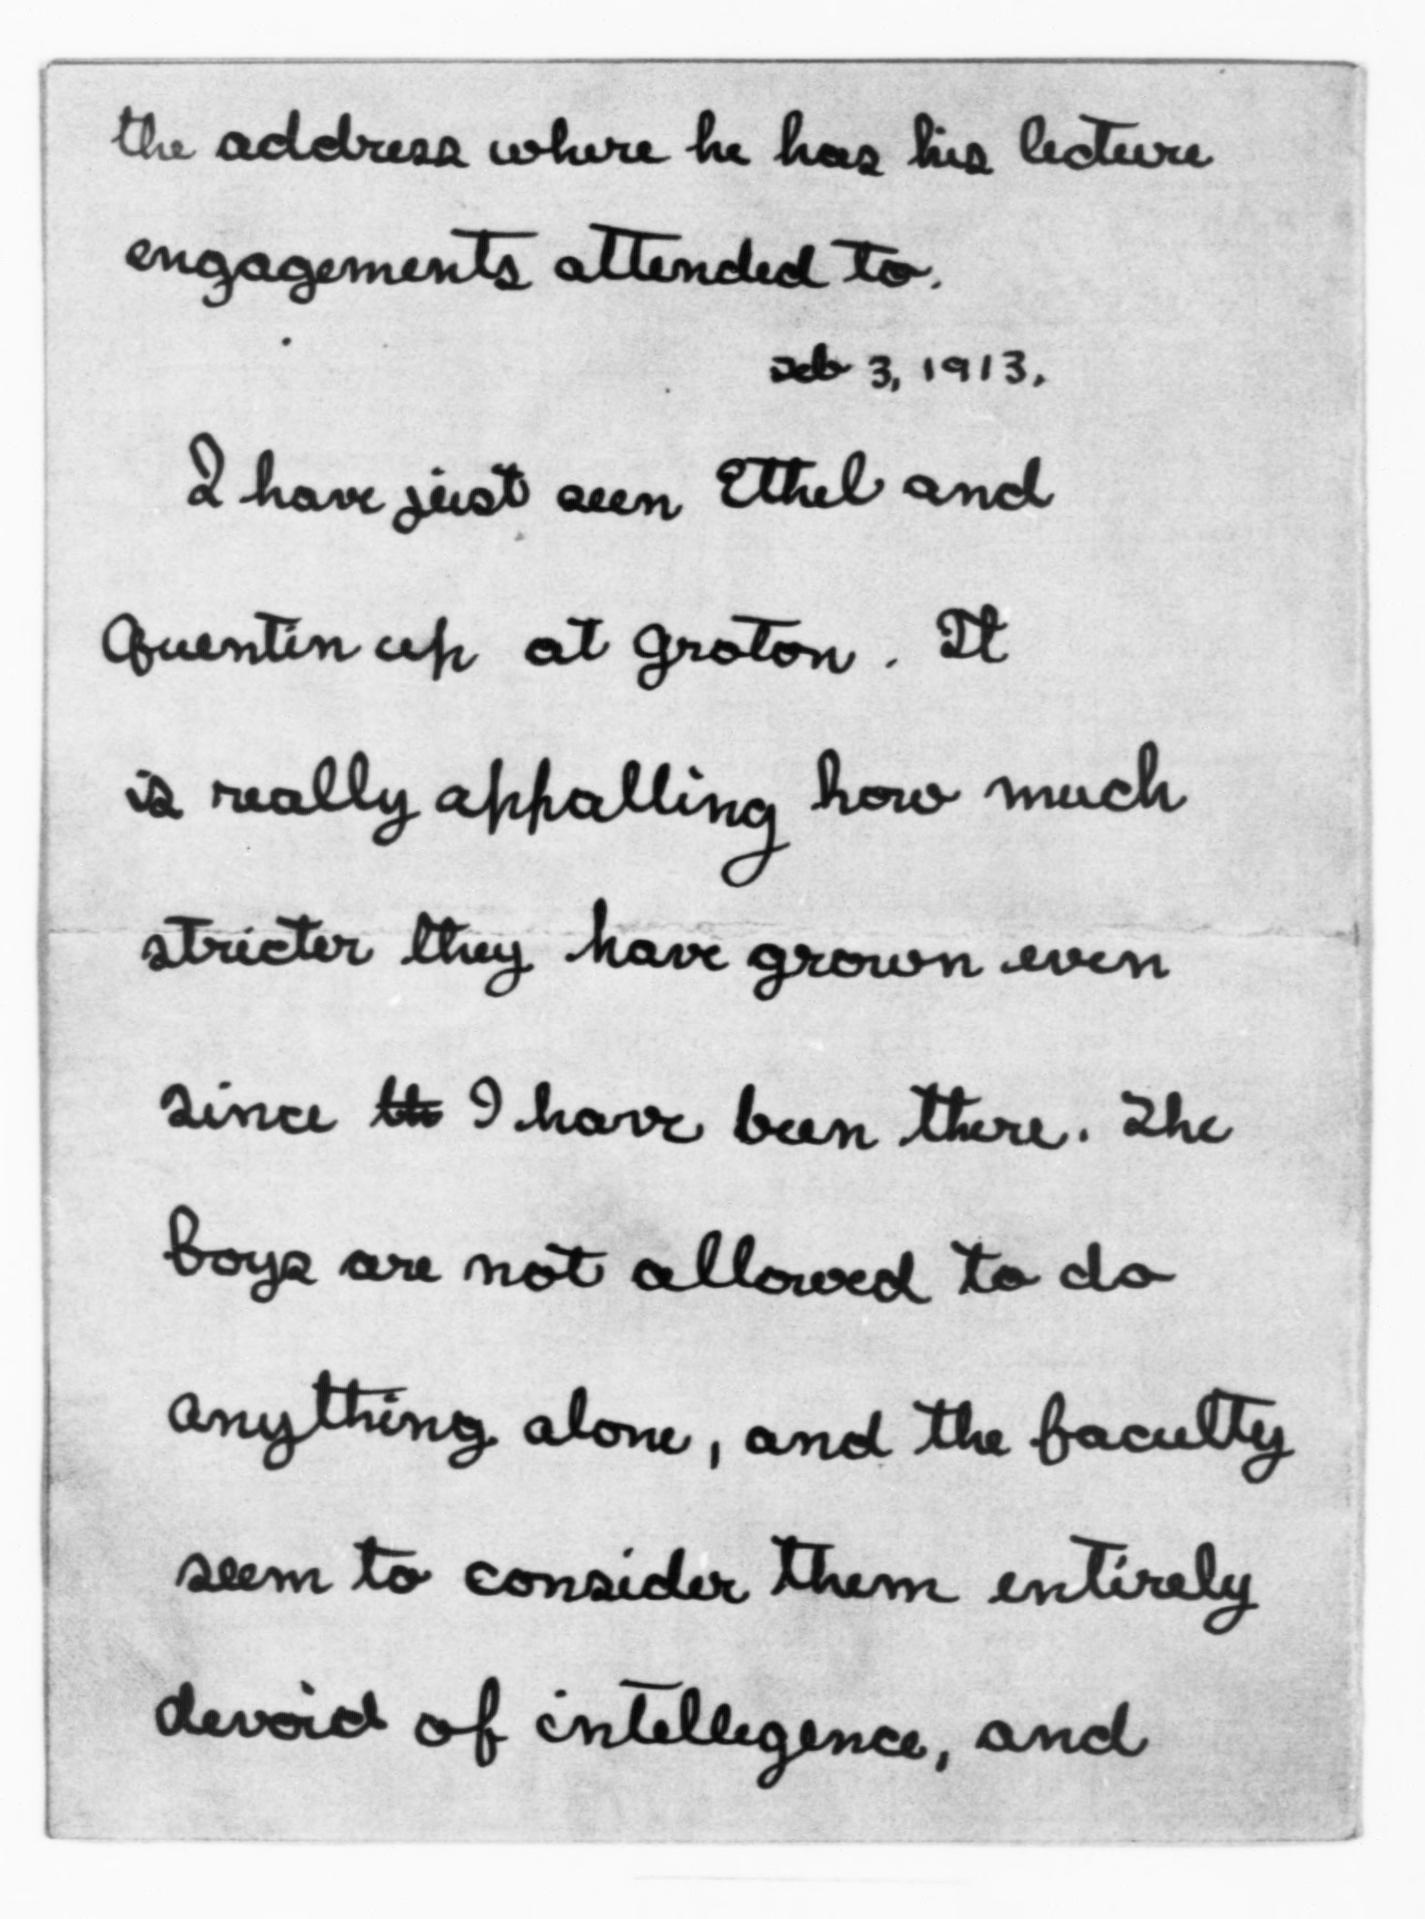 the address where he has his lecture
engagements attended to.
Feb 3, 1913.
I have just seen Ethel and
Quentin up at Groton. It
is really appalling how much
stricter they have grown even
since th I have been there. The
boys are not allowed to do
anything alone, and the faculty
seem to consider them entirely
devoid of intellegence, and